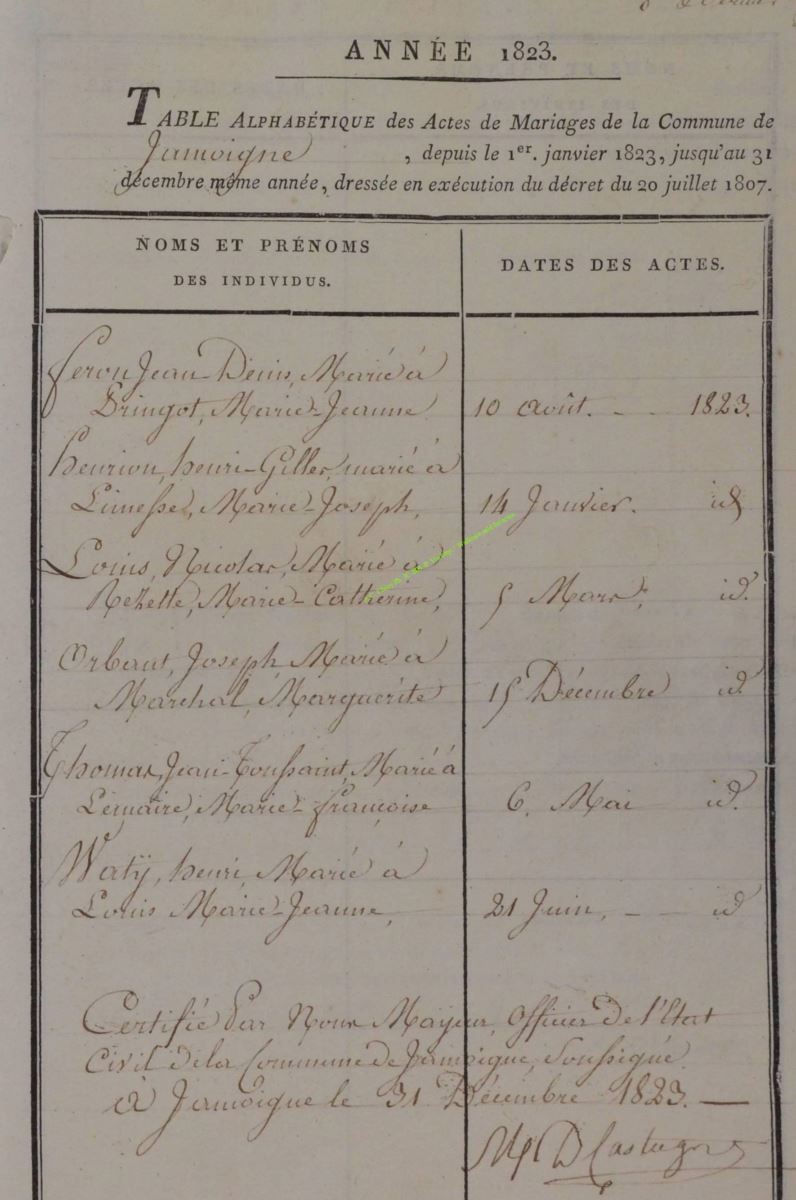 ANNÉE 1823.
TABLE ALPHABÉTIQUE des Actes de Mariages de la Commune de
Jamoigne, depuis le 1er. janvier 1823, jusqu'au 31
décembre même année, dressée en exécution du décret du 20 juillet 1807.
NOMS ET PRÉNOMS
DES INDIVIDUS.
DATES DES ACTES.
feron Jean-Denis, Marié à
Dringot, Marie-Jeanne 10 août. - - 1823.
henrion, henri-Gilles, marié à
Limesse, Marie-Joseph, 14 Janvier. id
Louis, Nicolas, Marié à
Rezette, Marie-Catherine, 5 Mars, id.
Orbant, Joseph Marié à
Marchal, Marguérite 15 Décembre id
Thomas, Jean-Toussaint, Marié à
Lemaire, Marie-françoise 6. Mai id.
Waty, henri, Marié à
Louis Marie-Jeanne, 21 Juin, - id
Certifié Par Nous Mayeur, Officier de l'Etat
Civil de la Commune de Jamoigne, Soussigné.
à Jamoigne le 31 Décembre 1823. —